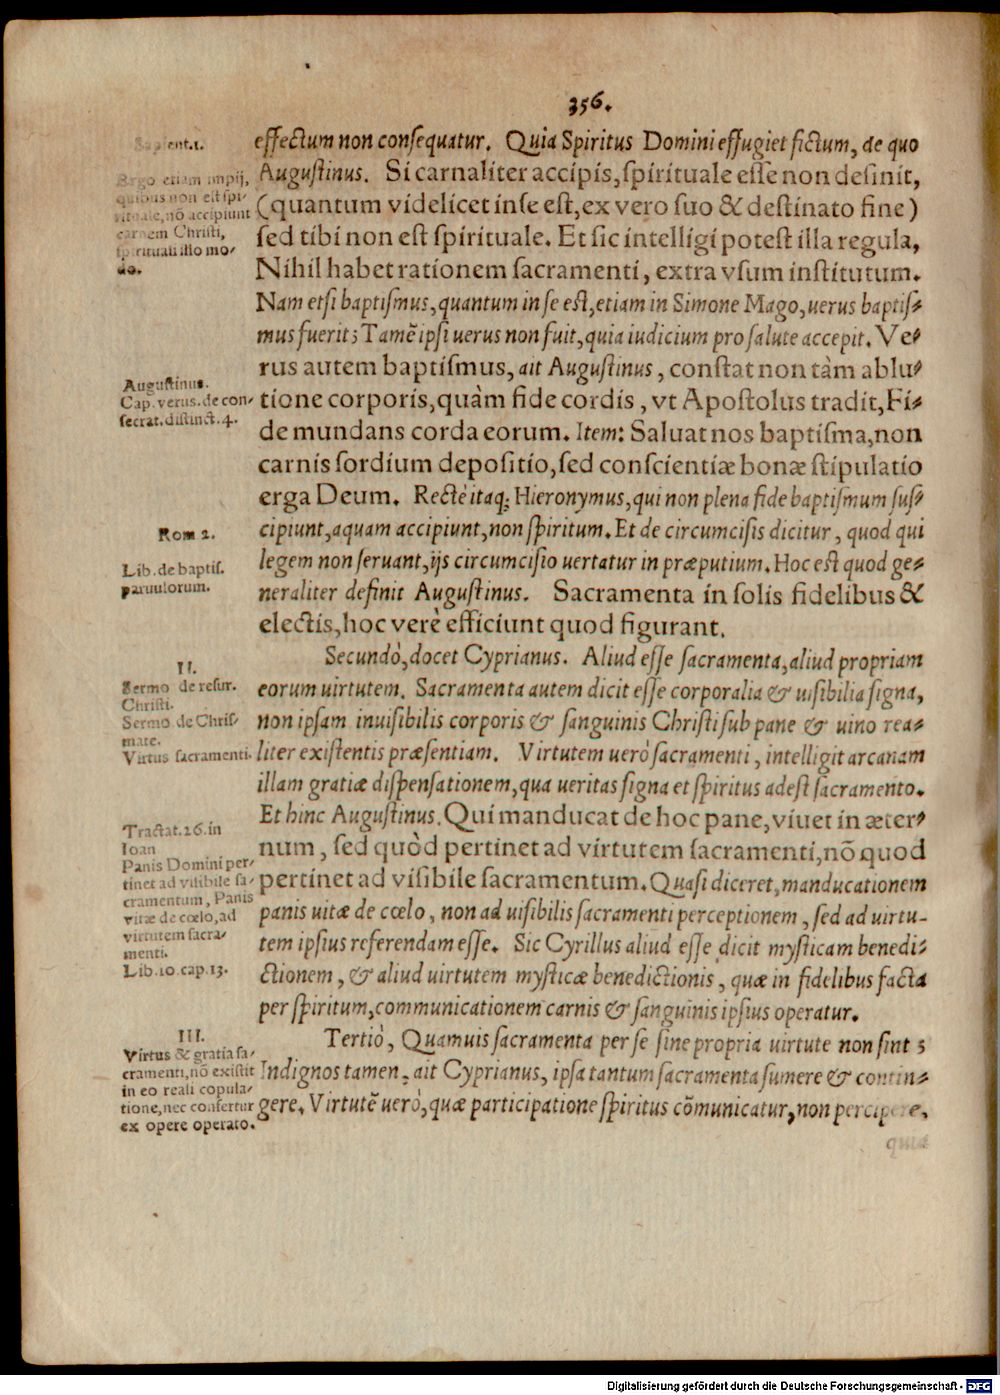 356.
Sapient.1.
Ergo etiam impij,
quibus non est spi-
rituale, nō accipiunt
carnem Christi,
spirituali illo mo-
do.
effectum non consequatur. Quia Spiritus Domini effugiet fictum, de quo
Augustinus. Si carnaliter accipis, spirituale esse non desinit,
(quantum videlicet in se est, ex vero suo & destinato fine)
sed tibi non est spirituale. Et sic intelligi potest illa regula,
Nihil habet rationem sacramenti, extra vsum institutum.
Nam etsi baptismus, quantum in se est, etiam in Simone Mago, uerus baptis-
mus fuerit; Tamē ipsi uerus non fuit, quia iudicium pro salute accepit. Ve-
Augustinus.
Cap. verus. de con-
secrat. distinct. 4.
rus autem baptismus, ait Augustinus, constat non tàm ablu-
tione corporis, quàm fide cordis, vt Apostolus tradit, Fi-
de mundans corda eorum. Item: Saluat nos baptisma, non
carnis sordium depositio, sed conscientiæ bonæ stipulatio
erga Deum. Rectè itaq; Hieronymus, qui non plena fide baptismum sus-
Rom 2.
Lib. de baptis.
paruulorum.
cipiunt, aquam accipiunt, non spiritum. Et de circumcisis dicitur, quod qui
legem non seruant, ijs circumcisio uertatur in præputium. Hoc est quod ge-
neraliter definit Augustinus. Sacramenta in solis fidelibus &
electis, hoc verè efficiunt quod figurant.
II.
Sermo de resur.
Christi.
Sermo de Chris-
mate.
Virtus sacramenti.
Secundò, docet Cyprianus. Aliud esse sacramenta, aliud propriam
eorum uirtutem. Sacramenta autem dicit esse corporalia & uisibilia signa,
non ipsam inuisibilis corporis & sanguinis Christi sub pane & uino rea-
liter existentis præsentiam. Virtutem uerò sacramenti, intelligit arcanam
illam gratiæ dispensationem, qua ueritas signa et spiritus adest sacramento.
Tractat. 26. in
Ioan
Panis Domini per-
tinet ad visibile sa-
cramentum, Panis
vitæ de cœlo, ad
virtutem sacra-
menti.
Lib. 10. cap. 13.
Et hinc Augustinus. Qui manducat de hoc pane, viuet in æter-
num, sed quòd pertinet ad virtutem sacramenti, nō quod
pertinet ad visibile sacramentum. Quasi diceret, manducationem
panis uitæ de cœlo, non ad uisibilis sacramenti perceptionem, sed ad uirtu-
tem ipsius referendam esse. Sic Cyrillus aliud esse dicit mysticam benedi-
ctionem, & aliud uirtutem mysticæ benedictionis, quæ in fidelibus facta
per spiritum, communicationem carnis & sanguinis ipsius operatur.
III.
Virtus & gratia sa-
cramenti, nō existit
in eo reali copula-
tione, nec confertur
ex opere operato.
Tertiò, Quamuis sacramenta per se sine propria uirtute non sint;
Indignos tamen, ait Cyprianus, ipsa tantum sacramenta sumere & contin-
gere. Virtutē uerò, quæ participatione spiritus cōmunicatur, non percipere,
quia
Digitalisierung gefördert durch die Deutsche Forschungsgemeinschaft - DFG